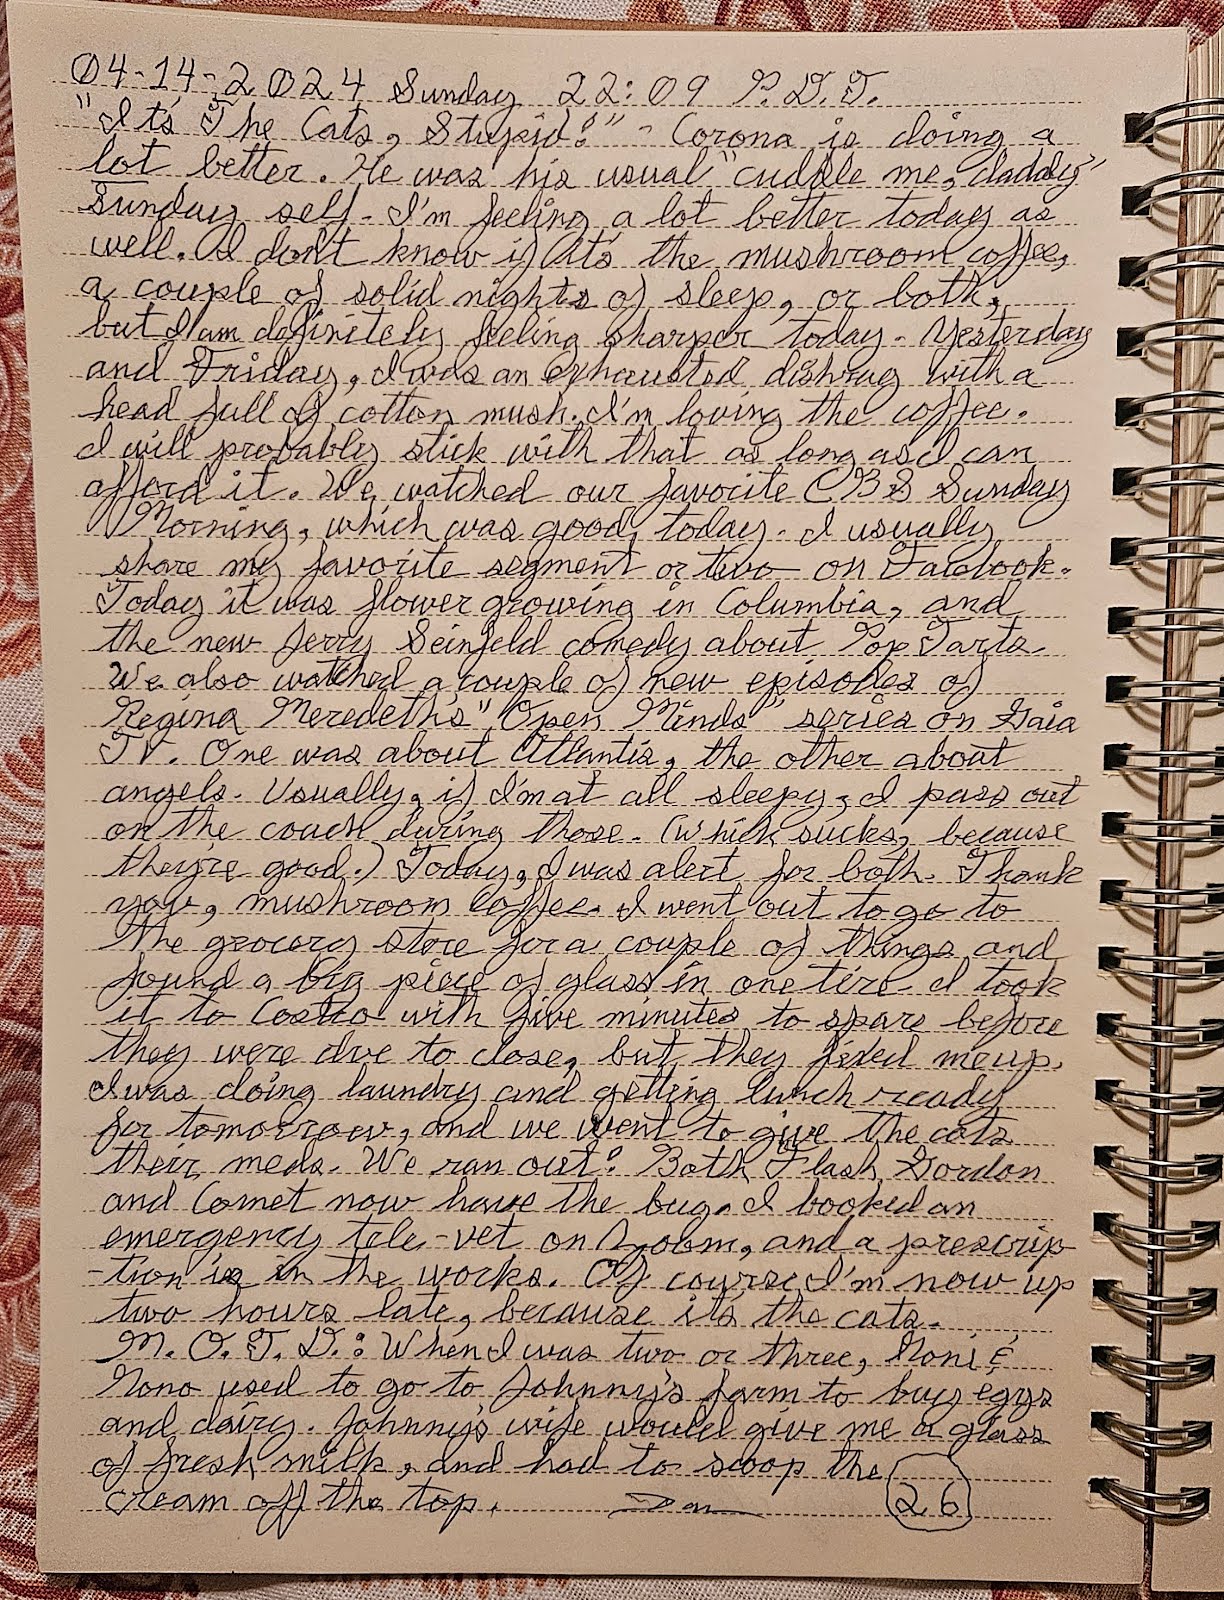 04-14-2024 Sunday 22:09 P.D.T.
"It's The Cats, Stupid!" - Corona is doing a
lot better. He was his usual "cuddle me, daddy"
Sunday self. I'm feeling a lot better today as
well. I don't know if it's the mushroom coffee,
a couple of solid nights of sleep, or both,
but I am definitely feeling sharper today. Yesterday
and Friday, I was an exhausted dishrag with a
head full of cotton mush. I'm loving the coffee.
I will probably stick with that as long as I can
afford it. We watched our favorite CBS Sunday
Morning, which was good today. I usually
share my favorite segment or two on Facebook.
Today it was flower growing in Columbia, and
the new Jerry Seinfeld comedy about Pop Tarts.
We also watched a couple of new episodes of
Regina Meredeth's "Open Minds" series on Gaia
TV. One was about Atlantis, the other about
angels. Usually, if I'm at all sleepy, I pass out
on the couch during those. (Which sucks, because
they're good.) Today, I was alert for both. Thank
you, mushroom coffee. I went out to go to
the grocery store for a couple of things and
found a big piece of glass in one tire. I took
it to Costco with five minutes to spare before
they were due to close, but they fixed me up.
I was doing laundry and getting lunch ready
for tomorrow, and we went to give the cats
their meds. We ran out! Both Flash Gordon
and Comet now have the bug. I booked an
emergency tele-vet on Zoom, and a prescrip-
-tion is in the works. Of course I'm now up
two hours late, because it's the cats.
M.O.T.D.: When I was two or three, Noni &
Nono used to go to Johnny's farm to buy eggs
and dairy. Johnny's wife would give me a glass
of fresh milk, and had to scoop the
cream off the top. Dan
26